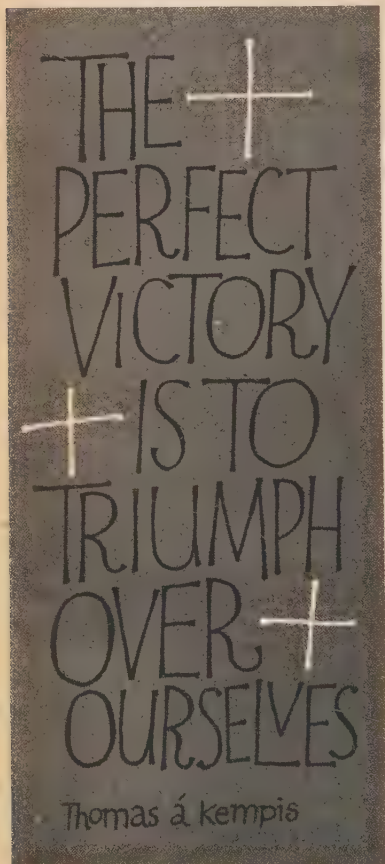 THE
PERFECT
VICTORY
IS TO
TRIUMPH
OVER
OURSELVES
Thomas á Kempis